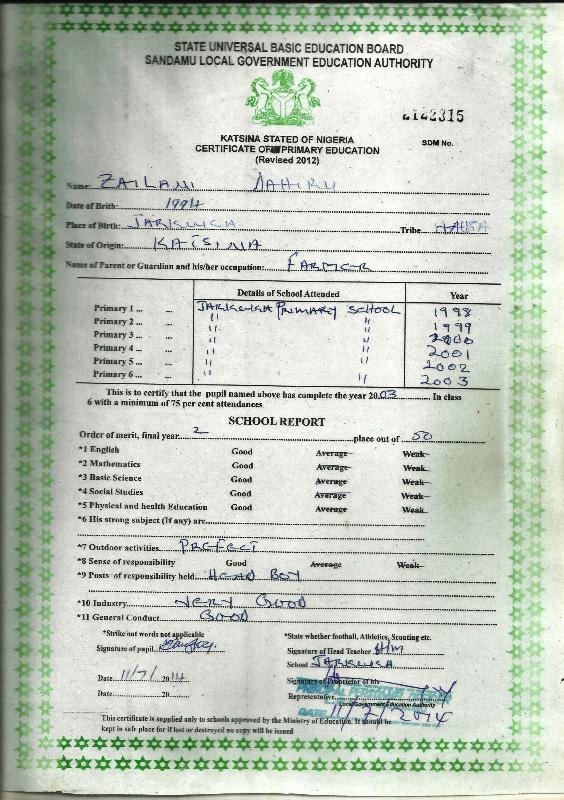 STATE UNIVERSAL BASIC EDUCATION BOARD
SANDAMU LOCAL GOVERNMENT EDUCATION AUTHORITY
2122315
KATSINA STATED OF NIGERIA
SDM No.
CERTIFICATE OF PRIMARY EDUCATION
(Revised 2012)
Name: ZAILANI DAHIRU
Date of Birth: 1994
Place of Birth: JARKUKA Tribe HAUSA
State of Origin: KATSINA
Name of Parent or Guardian and his/her occupation: FARMER
Details of School Attended Year
Primary 1 ... ... JARKUKA PRIMARY SCHOOL 1998
Primary 2 ... ... " " 1999
Primary 3 ... ... " " 2000
Primary 4 ... ... " " 2001
Primary 5 ... ... " " 2002
Primary 6 ... ... " 2003
This is to certify that the pupil named above has complete the year 2003 In class
6 with a minimum of 75 per cent attendances
SCHOOL REPORT
Order of merit, final year 2 place out of 50
*1 English Good Average Weak
*2 Mathematics Good Average Weak
*3 Basic Science Good Average Weak
*4 Social Studies Good Average Weak
*5 Physical and health Education Good Average Weak
*6 His strong subject (If any) are
*7 Outdoor activities PREFECT
*8 Sense of responsibility Good Average Weak
*9 Posts of responsibility held HEAD BOY
*10 Industry VERY GOOD
*11 General Conduct GOOD
*Strike out words not applicable *State whether football, Athletics, Scouting etc.
Signature of pupil Signature of Head Teacher
School JARKUKA
Date 11/7/2014 Signature of Proprietor of his
Date 20 Representative
Local Government Education Authority
DATE 11/7/2014
This certificate is supplied only to schools approved by the Ministry of Education. It should be
kept in safe place for if lost or destroyed no copy will be issued